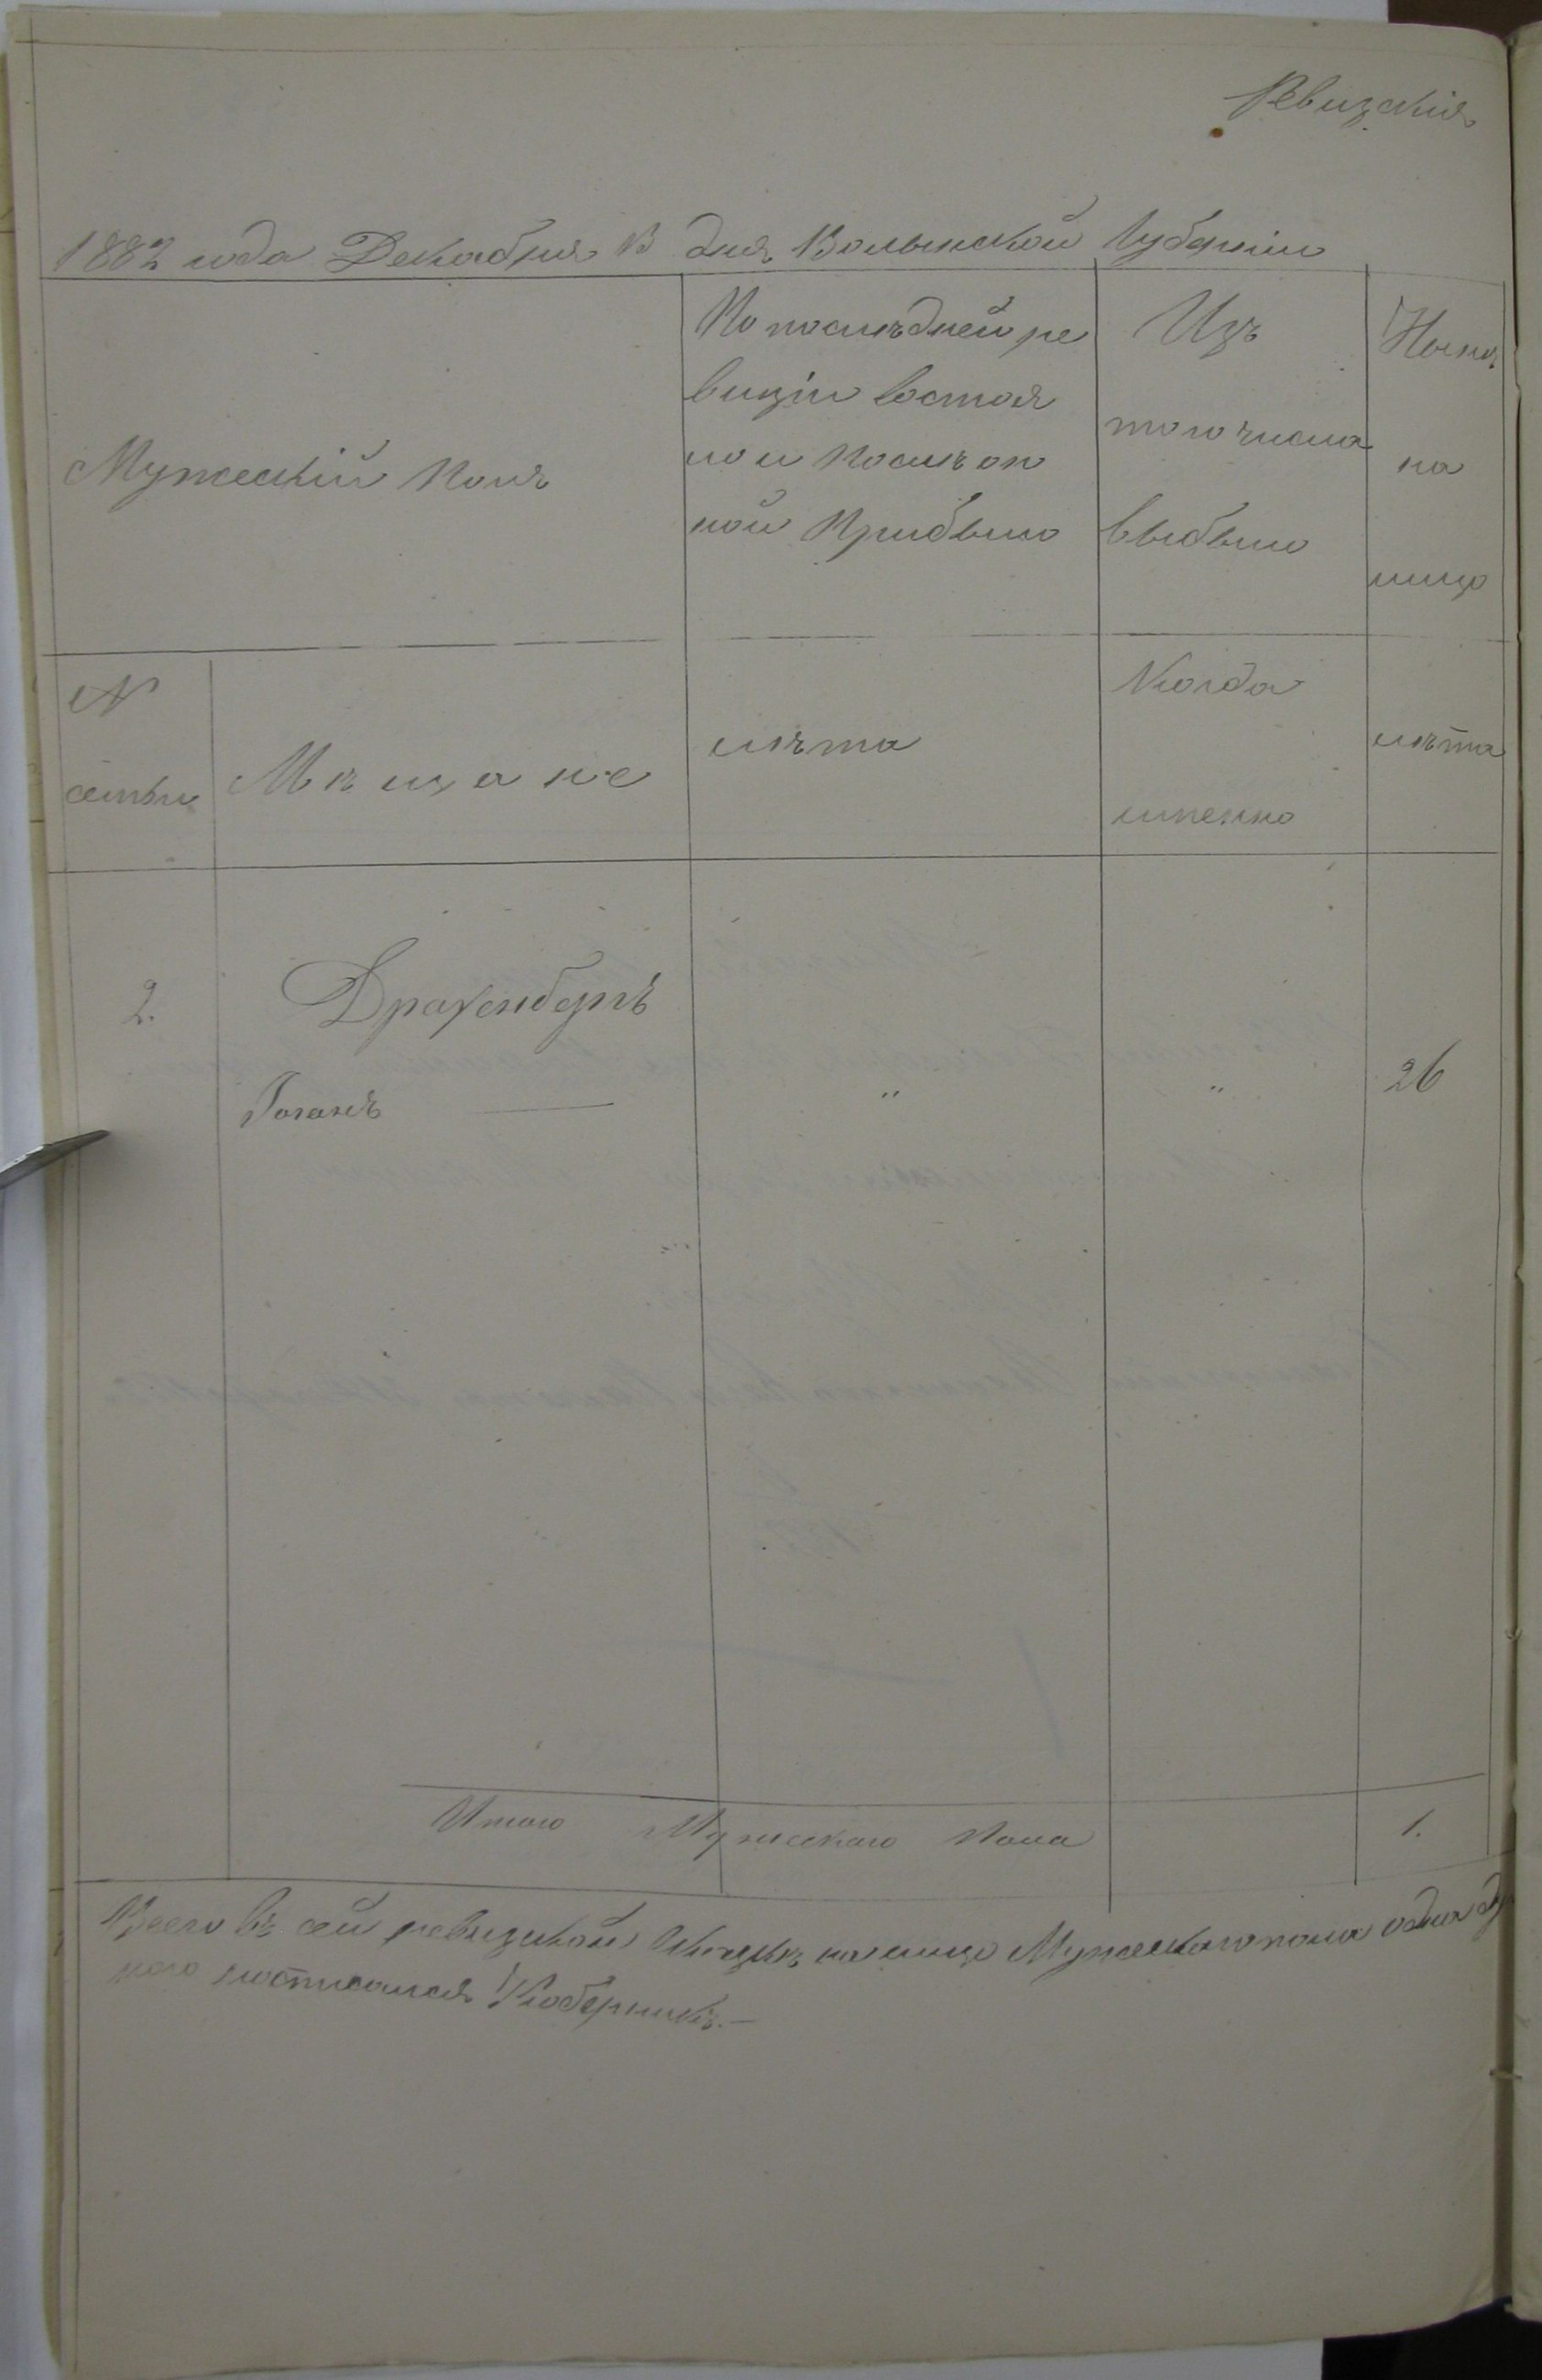 Ревизская
1882 года Декабря 13 дня Волынской Губерніи
Мужескій Полъ
По послѣдней ре
визіи состоя
ло и послѣ он
ной Прибыло
Изъ
того числа
выбыло
Нынѣ
на
лицо
№
семьи
Мѣщане
лѣта
Когда
именно
лѣта
2.
Драхенбергъ
Іоганъ — " " 26
Итого Мужескаго Пола 1.
Всего въ сей ревизской налицо Мужескаго пола одна